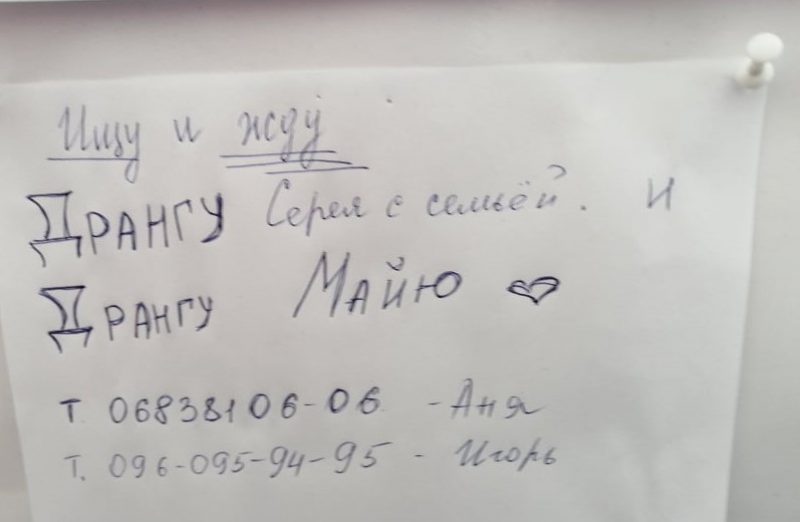 Ищу и жду
ДРАНГУ Серея с семьёй. и
ДРАНГУ МАЙЮ
т 06838106-06 - Аня
т. 096-095-94-95 - Игорь